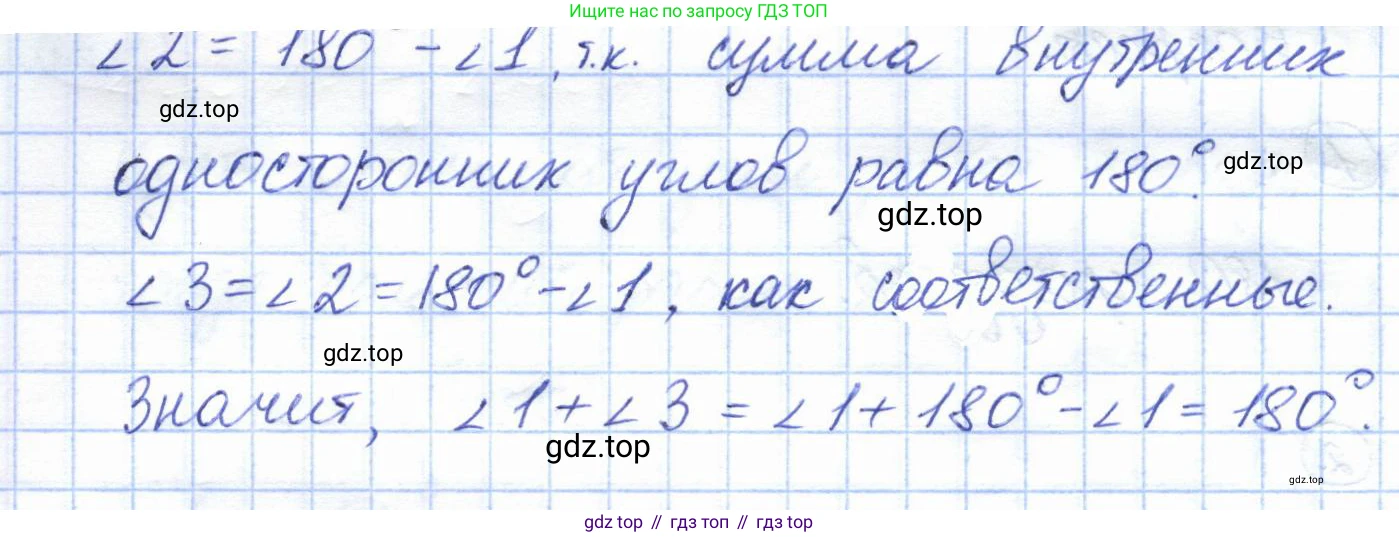 Ищите нас по запросу ГДЗ ТОП
∠2 = 180° - ∠1, т.к. сумма внутренних
gdz.top
односторонних углов равна 180°.
gdz.top
gdz.top
∠3 = ∠2 = 180° - ∠1, как соответственные.
gdz.top
Значит, ∠1 + ∠3 = ∠1 + 180° - ∠1 = 180°.
gdz.top
gdz.top
gdz top // гдз топ // гдз top